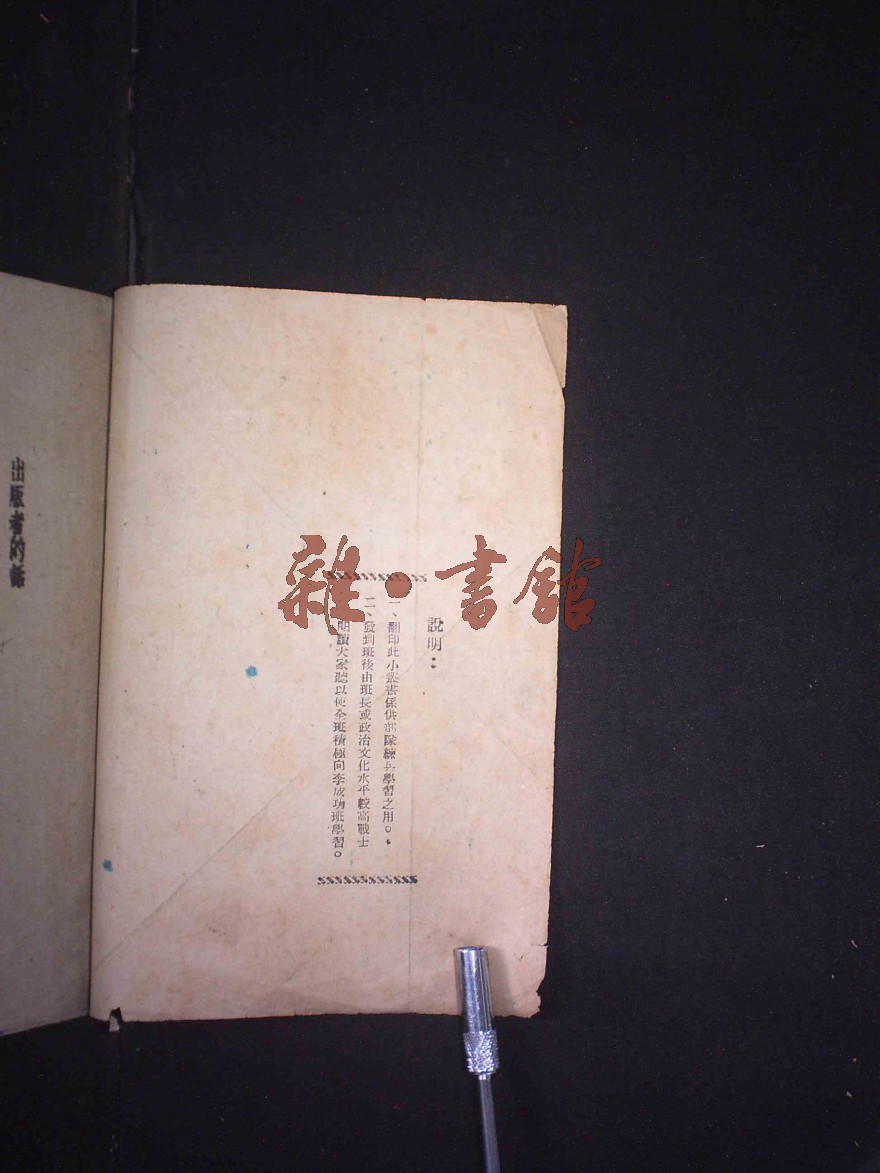 說明：
一、翻印此小叢書係供部隊練兵學習之用。
二、發到班後由班長或政治文化水平較高戰士
朗讀大家聽以使全班積極向李成功班學習。
出版者的
雜·書館